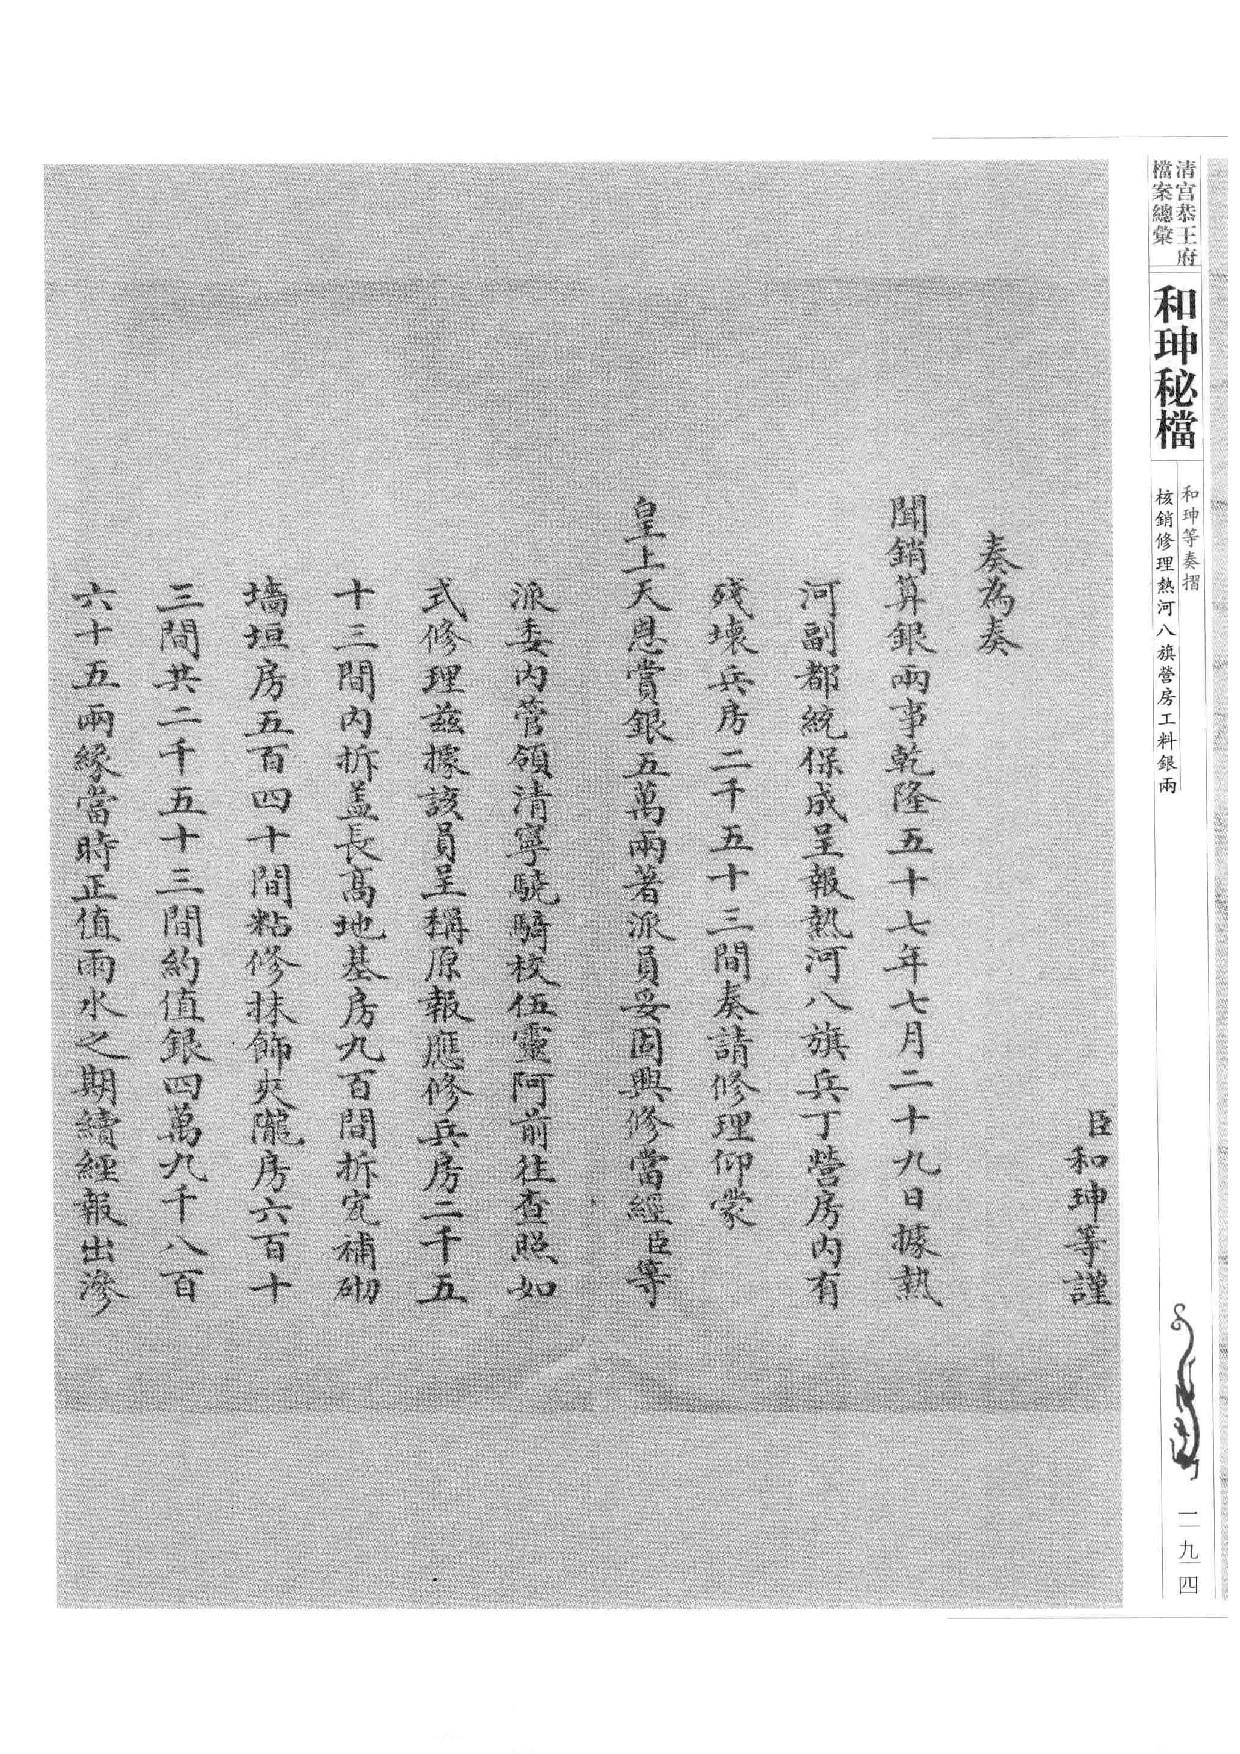 清宫恭王府
檔案總彙
和珅秘檔
和珅等奏摺
核銷修理熱河八旗營房工料銀兩
一九四
臣和珅等謹
奏為奏
聞銷算銀兩事乾隆五十七年七月二十九日據熱
河副都統保成呈報熱河八旗兵丁營房內有
殘壞兵房二千五十三間奏請修理仰蒙
皇上天恩賞銀五萬兩著派員妥固興修當經臣等
派委內管領清寧驍騎校伍靈阿前往查照如
式修理茲據該員呈稱原報應修兵房二千五
十三間內拆盖長高地基房九百間拆宼補砌
墻垣房五百四十間粘修抹飾夾隴房六百十
三間共二千五十三間約值銀四萬九千八百
六十五兩緣當時正值雨水之期續經報出滲